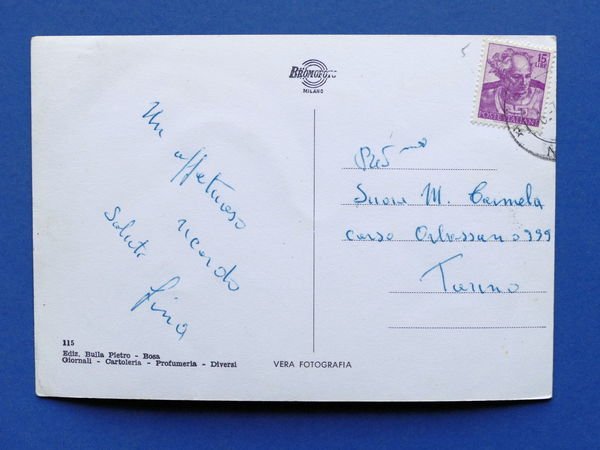 5
BROMOFOTO
MILANO
15
LIRE
POSTE ITALIANE
Un affettuoso
ricordo
Saluti
Gina
Suor M. Carmela
corso Orbassano 999
Torino
115
Ediz. Bulla Pietro - Bosa
Giornali - Cartoleria - Profumeria - Diversi
VERA FOTOGRAFIA